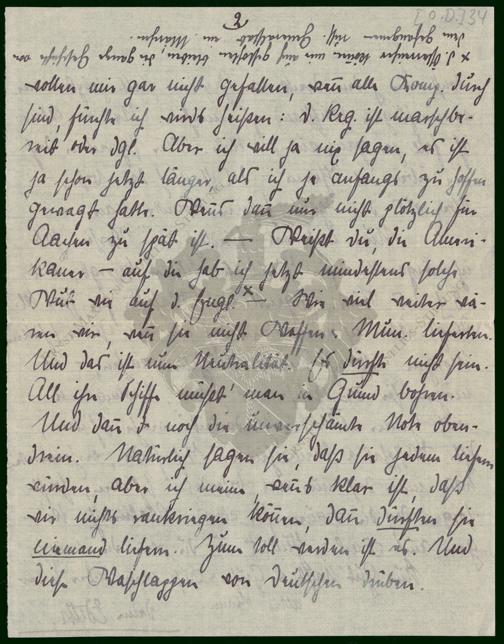 2
I O.D. 734
wollen mir gar nicht gefallen, wenn alle Komp. durch
sind, fürchte ich wird's heißen: d. Reg. ist marschbe-
reit oder dgl. Aber ich will ja nix sagen, es ist
ja schon jetzt länger, als ich je anfangs zu hoffen
gewagt hatte. Wenns dann nur nicht plötzlich für
Aachen zu spät ist. — Weißt du, die Ameri-
kaner – auf die hab ich jetzt mindestens solche
Wut wie auf d. Engl. x — Wie viel weiter wä-
ren wir, wenn sie nicht Waffen u. Mun. lieferten.
Und das ist nun Neutralität. Es dürfte nicht sein.
All ihre Schiffe müsst' man in Grund bohren.
Und dann noch die unverschämte Note oben-
drein. Natürlich sagen sie, daß sie jedem liefern
würden, aber ich meine, wenns klar ist, daß
wir nichts rankriegen können, dann dürften sie
niemand liefern. Zum toll werden ist es. Und
diese Waschlappen von Deutschen drüben.